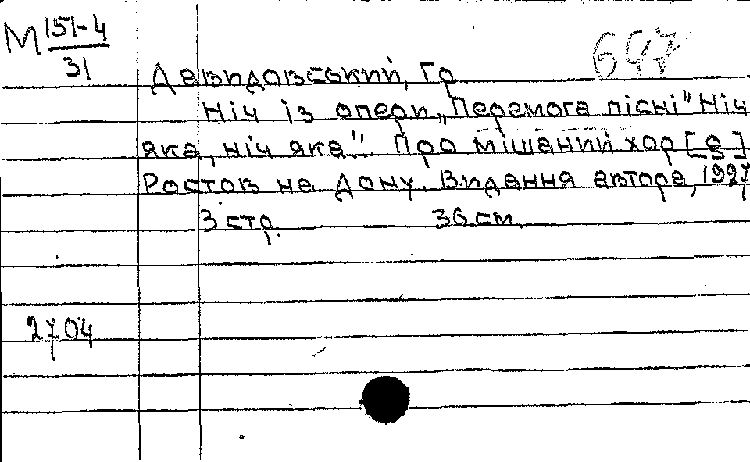 М 151-4
31
697
Давидовський, Гр
Ніч із опери „Перемога пісні" Ніч
яка, ніч яка". Про мішаний хор [g]
Ростов на Дону. Видання автора, 1927
3 стр. 36 см.
2704